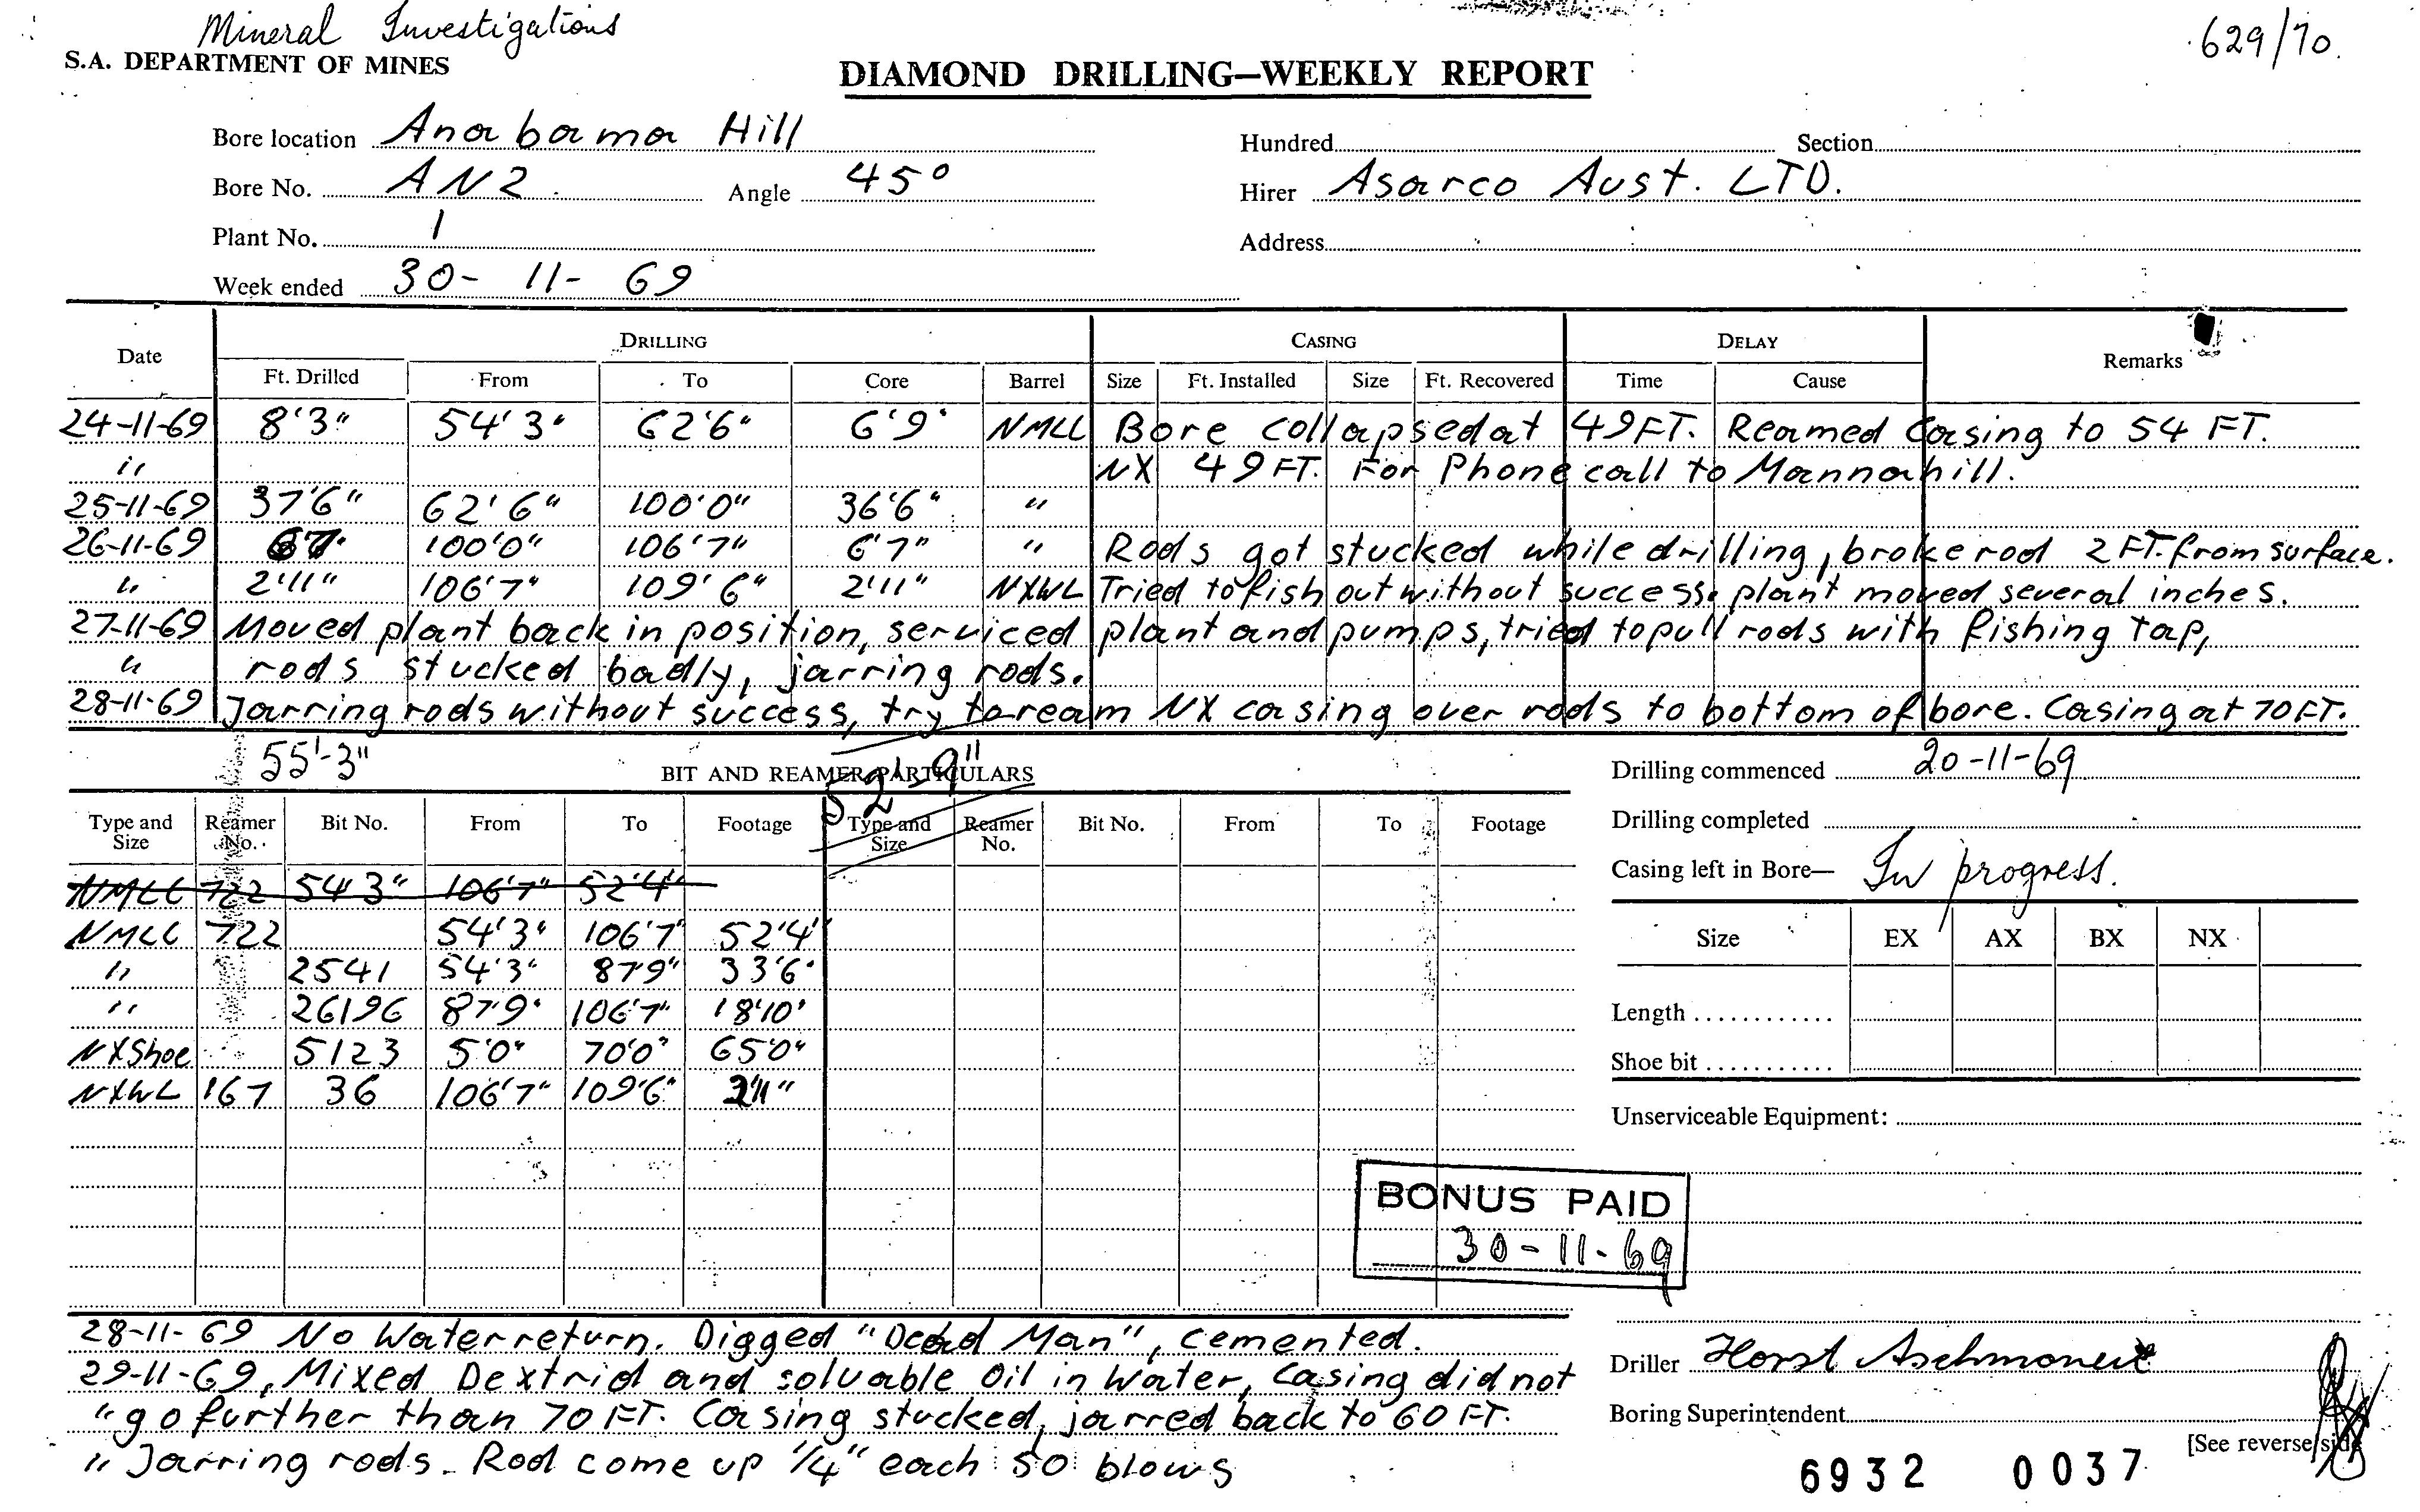 Mineral Investigations
629/70.
S.A. DEPARTMENT OF MINES
DIAMOND DRILLING—WEEKLY REPORT
Bore location Anabama Hill
Hundred Section
Bore No. AN2 Angle 45°
Hirer Asarco Aust. LTD.
Plant No. 1
Address
Week ended 30- 11- 69
Date DRILLING CASING DELAY Remarks
Ft. Drilled From To Core Barrel Size Ft. Installed Size Ft. Recovered Time Cause
24-11-69 8'3" 54'3" 62'6" 6'9" NMLC Bore collapsed at 49FT. Reamed Casing to 54 FT.
" NX 49FT. For Phone call to Mannahill.
25-11-69 37'6" 62'6" 100'0" 36'6" "
26-11-69 6'7" 100'0" 106'7" 6'7" " Rods got stucked while drilling, broke rod 2FT. from surface.
" 2'11" 106'7" 109'6" 2'11" NXWL Tried to fish out without success. plant moved several inches.
27-11-69 Moved plant back in position, serviced plant and pumps, tried to pull rods with fishing tap,
" rods stucked badly, jarring rods.
28-11-69 Jarring rods without success, try to ream NX casing over rods to bottom of bore. Casing at 70FT.
55'-3" 52'-9"
BIT AND REAMER PARTICULARS
Drilling commenced 20-11-69
Type and Size Reamer No. Bit No. From To Footage Type and Size Reamer No. Bit No. From To Footage
Drilling completed
Casing left in Bore— In progress.
NMLC 722 54'3" 106'7" 52'4"
NMLC 722 54'3" 106'7" 52'4"
" 2541 54'3" 87'9" 33'6"
" 26196 87'9" 106'7" 18'10"
NXShoe 5123 5'0" 70'0" 65'0"
NXWL 167 36 106'7" 109'6" 2'11"
Size EX AX BX NX
Length ............
Shoe bit ...........
Unserviceable Equipment:
BONUS PAID
30-11-69
28-11-69 No Water return. Digged "Dead Man", cemented.
29-11-69, Mixed Dextrid and soluable Oil in Water, Casing did not
" go further than 70FT. Casing stucked, jarred back to 60FT.
" Jarring rods. Rod come up 1/4" each 50 blows
Driller Horst
Boring Superintendent
[See reverse side
6932 0037